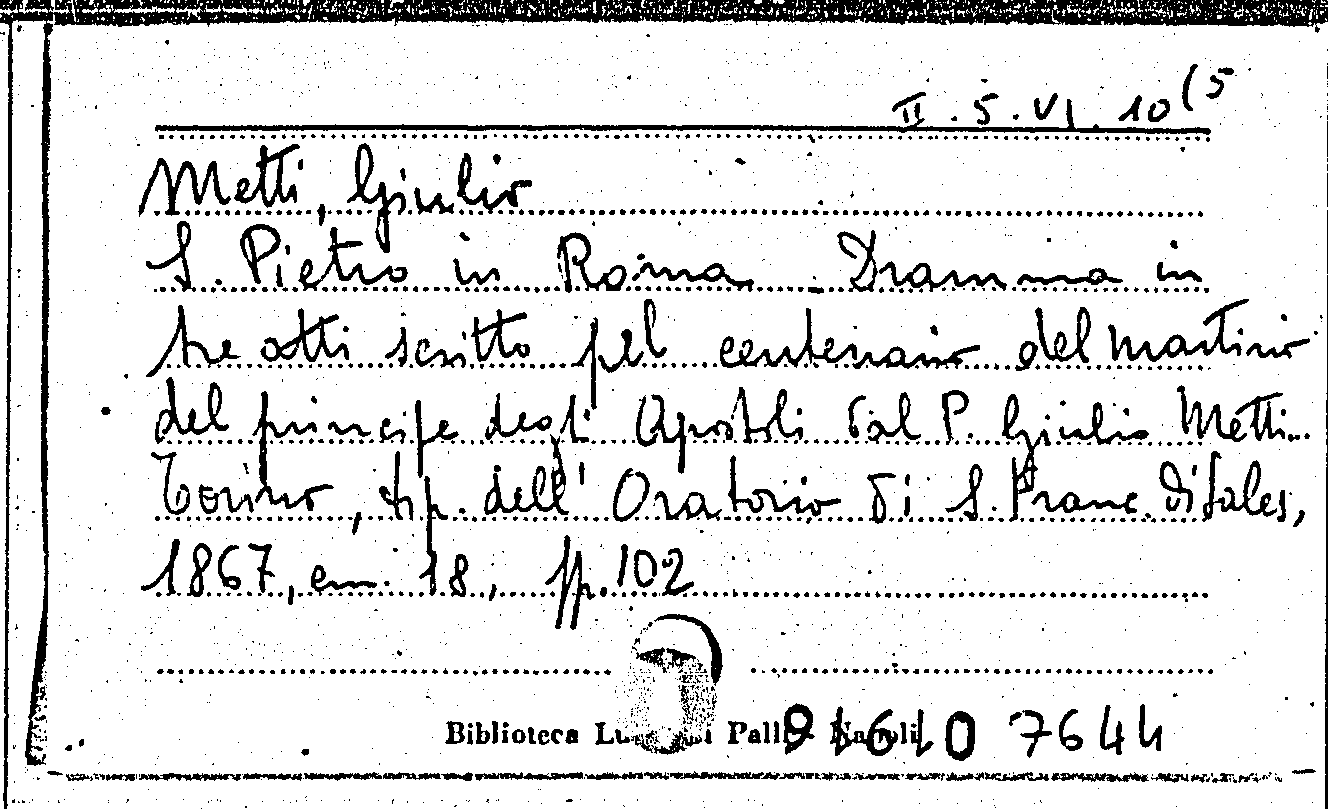 II.5.VI.10(5
Metti, Giulio
S. Pietro in Roma. Dramma in
tre atti scritto pel centenario del martirio
del principe degli Apostoli dal P. Giulio Metti..
Torino, tip. dell' Oratorio di S. Franc. di Sales,
1867, cm. 18, pp. 102
Biblioteca Napoli 7644